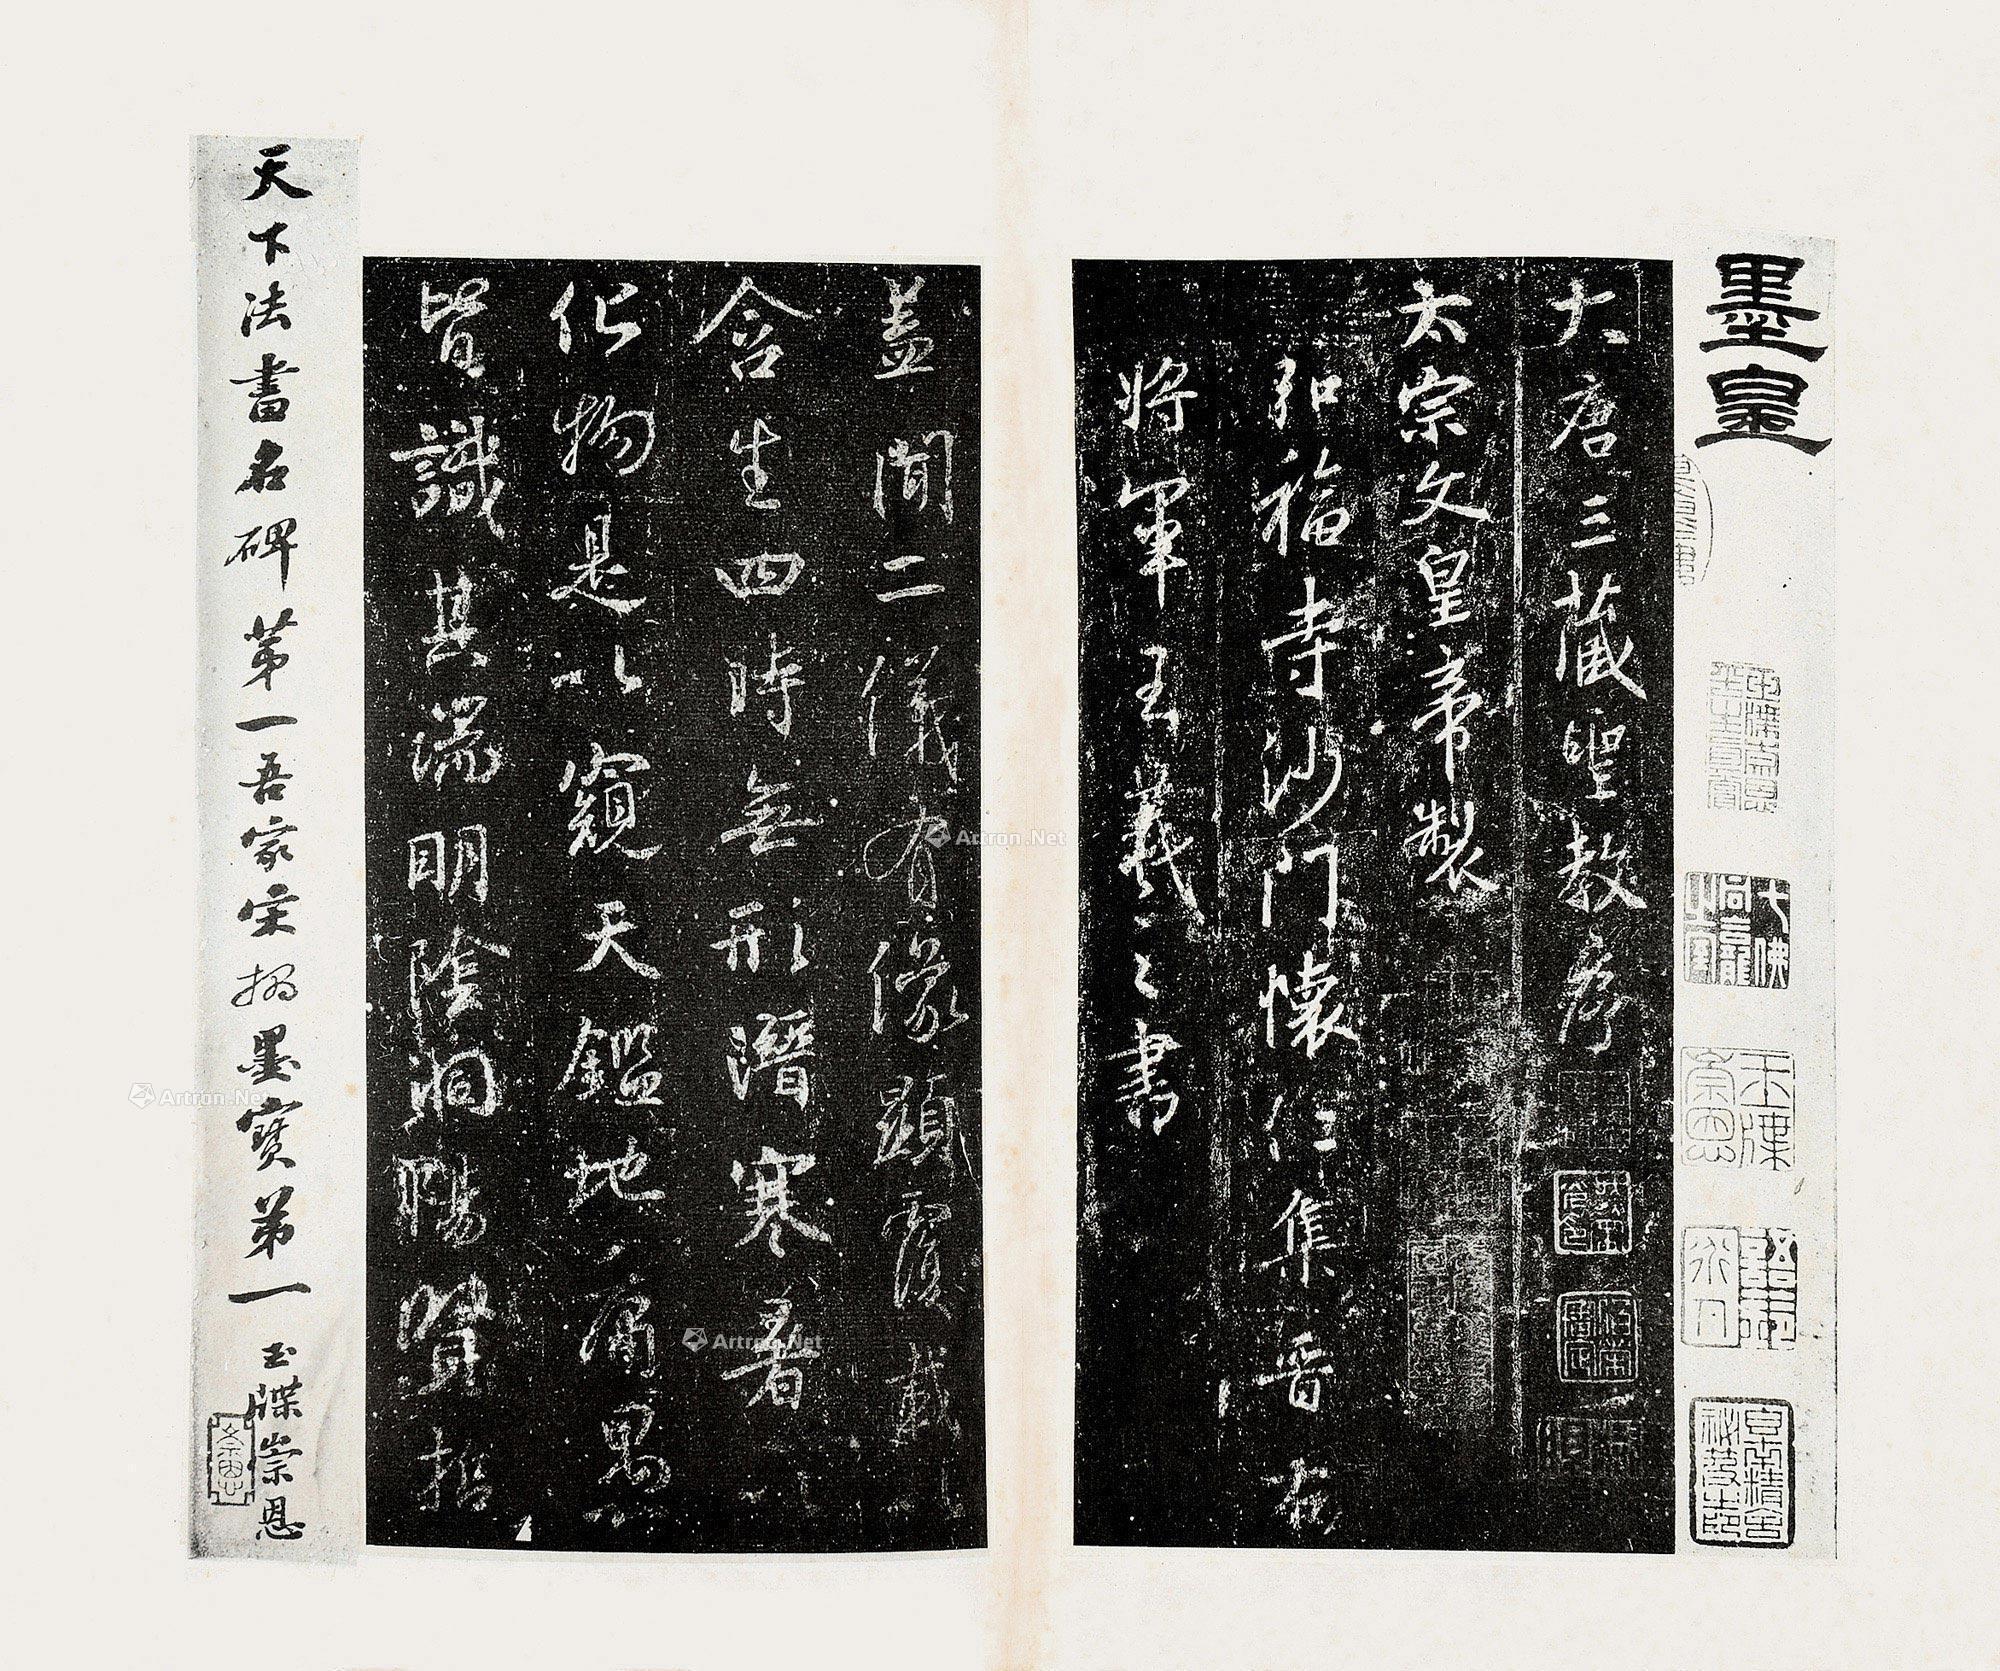 墨皇
大唐三藏聖教序
太宗文皇帝製
弘福寺沙門懷仁集晉右
將軍王羲之書
蓋聞二儀有像顯覆載
含生四時無形潛寒暑以
化物是以窺天鑑地庸愚
皆識其端明陰洞陽賢哲
天下法書名碑苐一吾家宋搨墨寶苐一玉牒崇恩
崇恩
七佛同龕之室
玉牒崇恩
Artron.Net
Artron.Net
Artron.Net